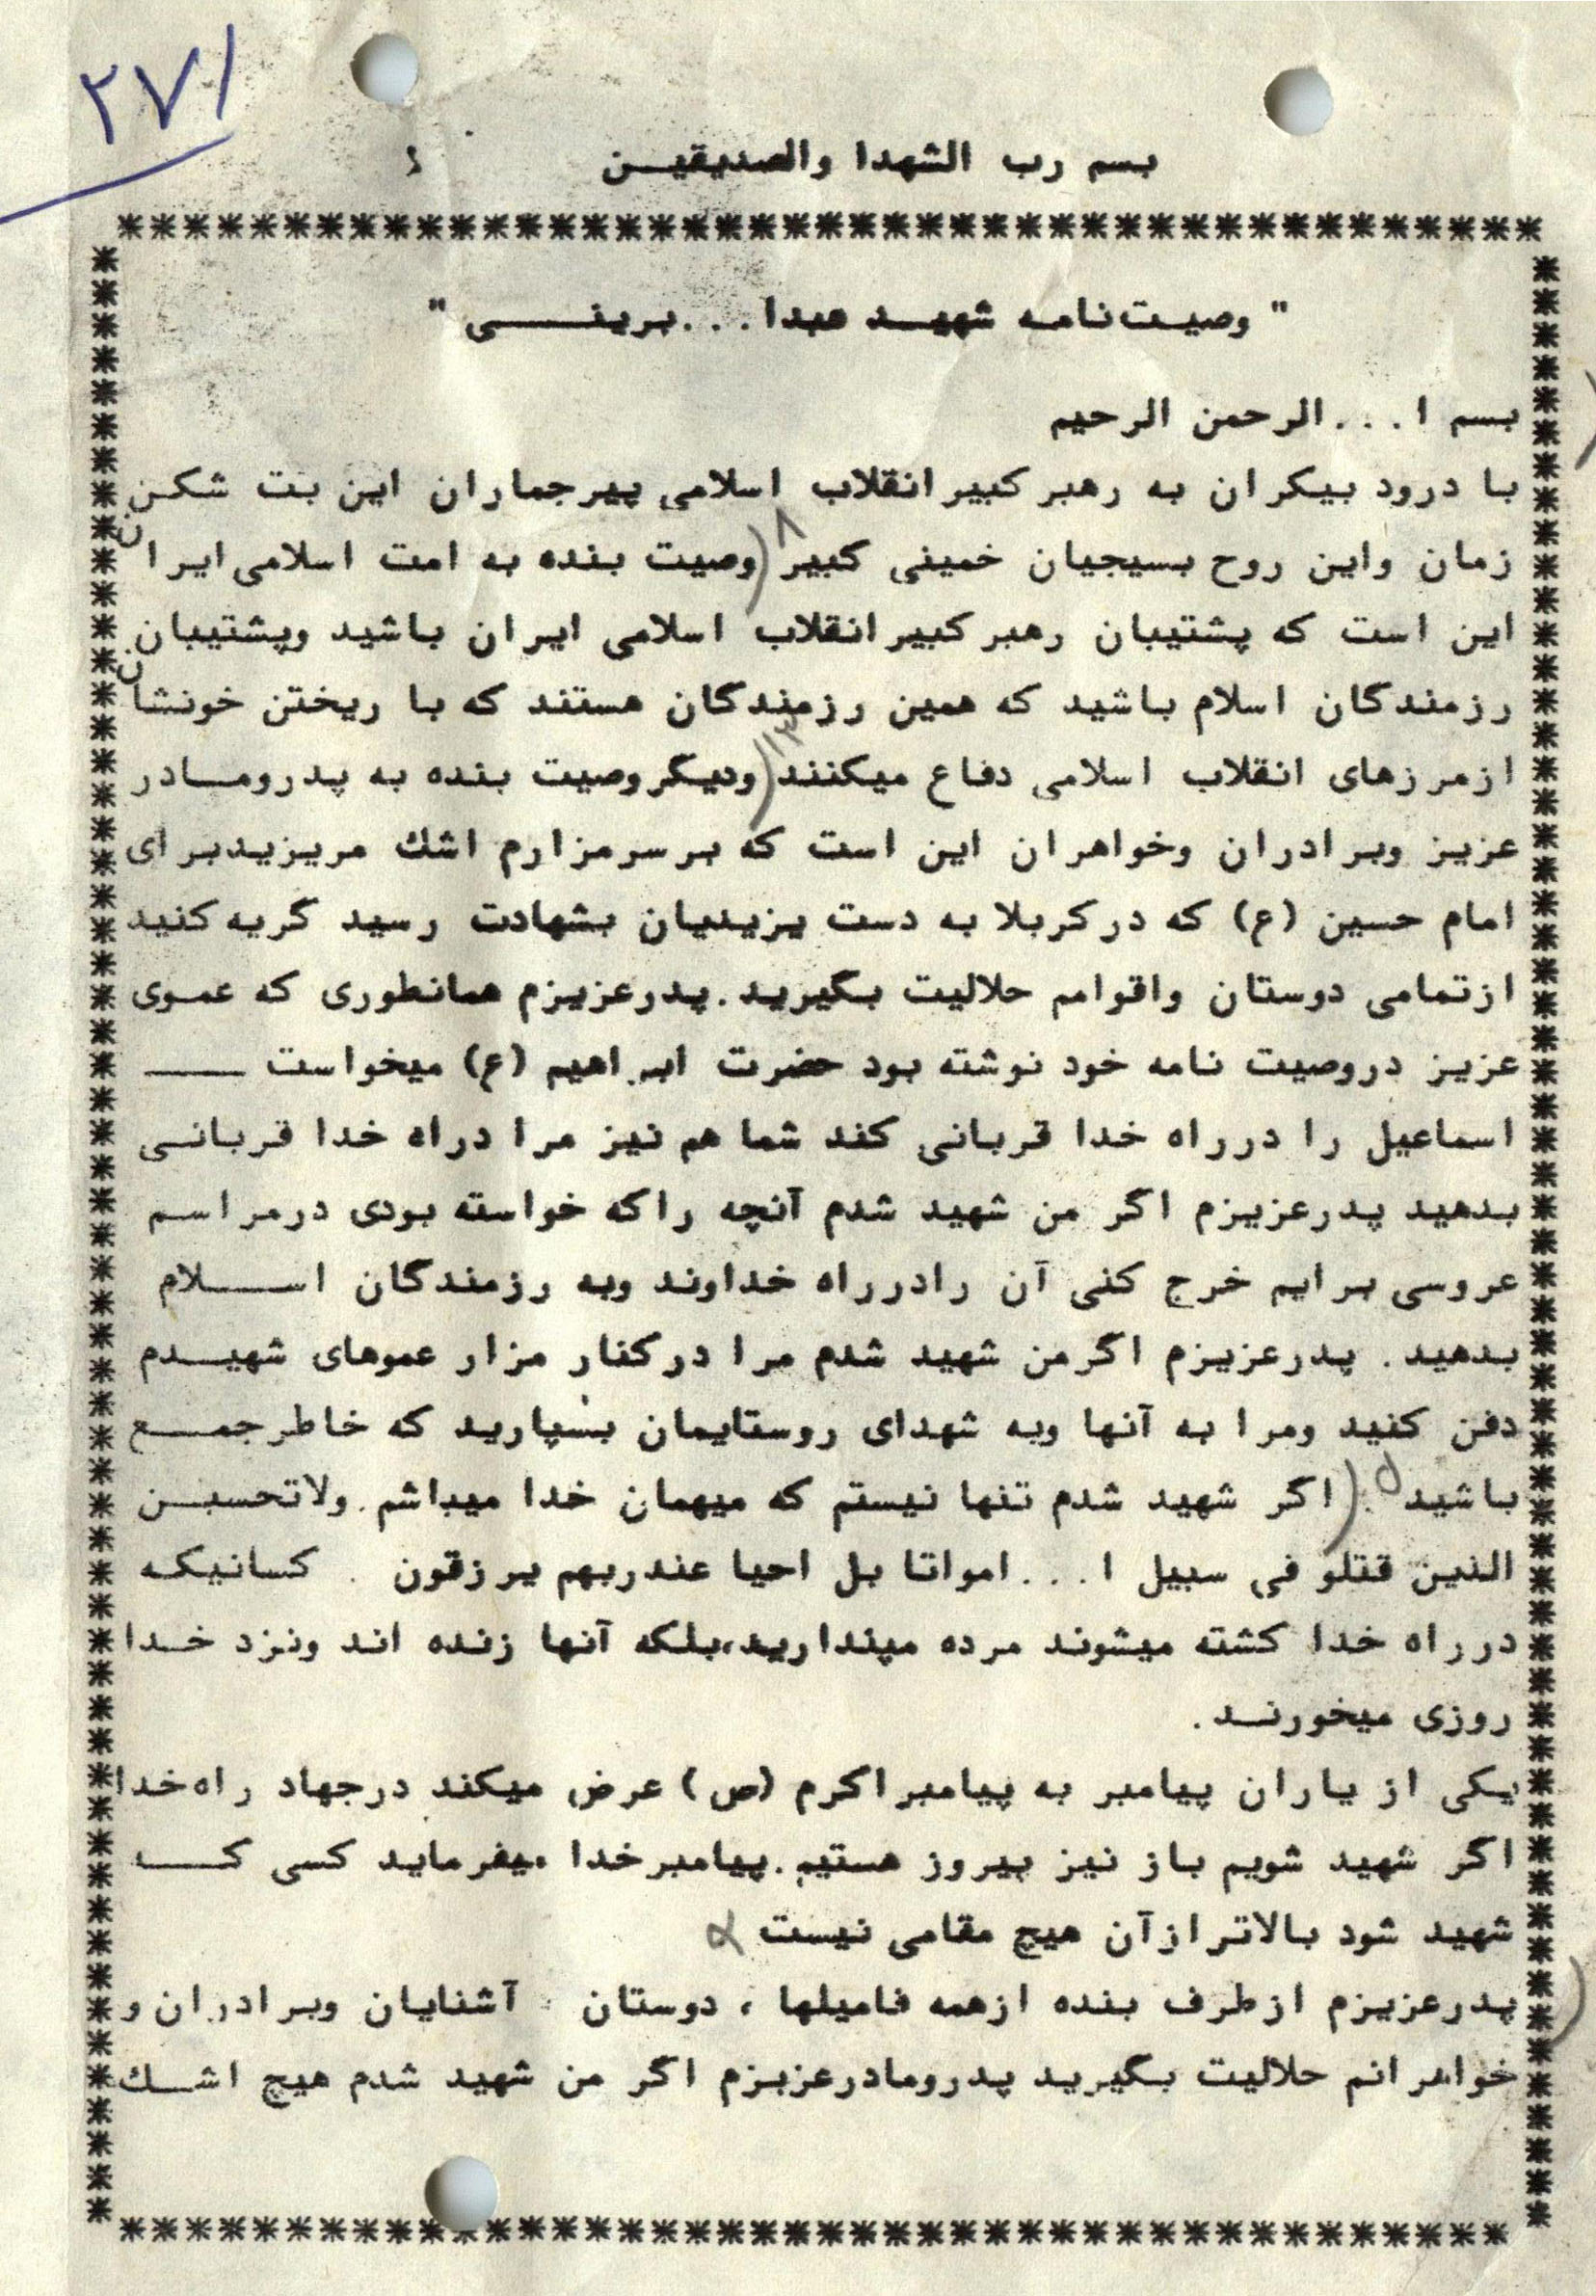 ۲۷۱
بسم رب الشهدا والصدیقین
" وصیت‌نامه شهید عبدا...برینی "
بسم ا...الرحمن الرحیم
با درود بیکران به رهبر کبیر انقلاب اسلامی پیرجماران این بت شکن
زمان واین روح بسیجیان خمینی کبیر ۸ (وصیت بنده به امت اسلامی ایران
این است که پشتیبان رهبر کبیر انقلاب اسلامی ایران باشید وپشتیبان
رزمندگان اسلام باشید که همین رزمندگان هستند که با ریختن خونشان
ازمرزهای انقلاب اسلامی دفاع میکنند ۱۳ (ودیگر وصیت بنده به پدرومادر
عزیز وبرادران وخواهران این است که بر سرمزارم اشك مریزیدبرای
امام حسین (ع) که درکربلا به دست یزیدیان بشهادت رسید گریه کنید
ازتمامی دوستان واقوامم حلالیت بگیرید.پدرعزیزم همانطوری که عموی
عزیز دروصیت نامه خود نوشته بود حضرت ابراهیم (ع) میخواست ـــــ
اسماعیل را درراه خدا قربانی کند شما هم نیز مرا دراه خدا قربانی
بدهید پدرعزیزم اگر من شهید شدم آنچه راکه خواسته بودی درمراسم
عروسی برایم خرج کنی آن رادرراه خداوند وبه رزمندگان اسلام
بدهید. پدرعزیزم اگرمن شهید شدم مرا درکنار مزار عموهای شهیدم
دفن کنید ومرا به آنها وبه شهدای روستایمان بسپارید که خاطرجمع
باشید ۵ .(اگر شهید شدم تنها نیستم که میهمان خدا میباشم.ولاتحسبن
الذین قتلو فی سبیل ا...امواتا بل احیا عندربهم یرزقون . کسانیکه
درراه خدا کشته میشوند مرده مپندارید،بلکه آنها زنده اند ونزد خدا
روزی میخورند.
یکی از یاران پیامبر به پیامبراکرم (ص) عرض میکند درجهاد راه خدا
اگر شهید شویم باز نیز پیروز هستیم.پیامبرخدا میفرماید کسی که
شهید شود بالاترازآن هیچ مقامی نیست
پدرعزیزم ازطرف بنده ازهمه فامیلها ، دوستان آشنایان وبرادران و
خواهرانم حلالیت بگیرید پدرومادرعزیزم اگر من شهید شدم هیچ اشك